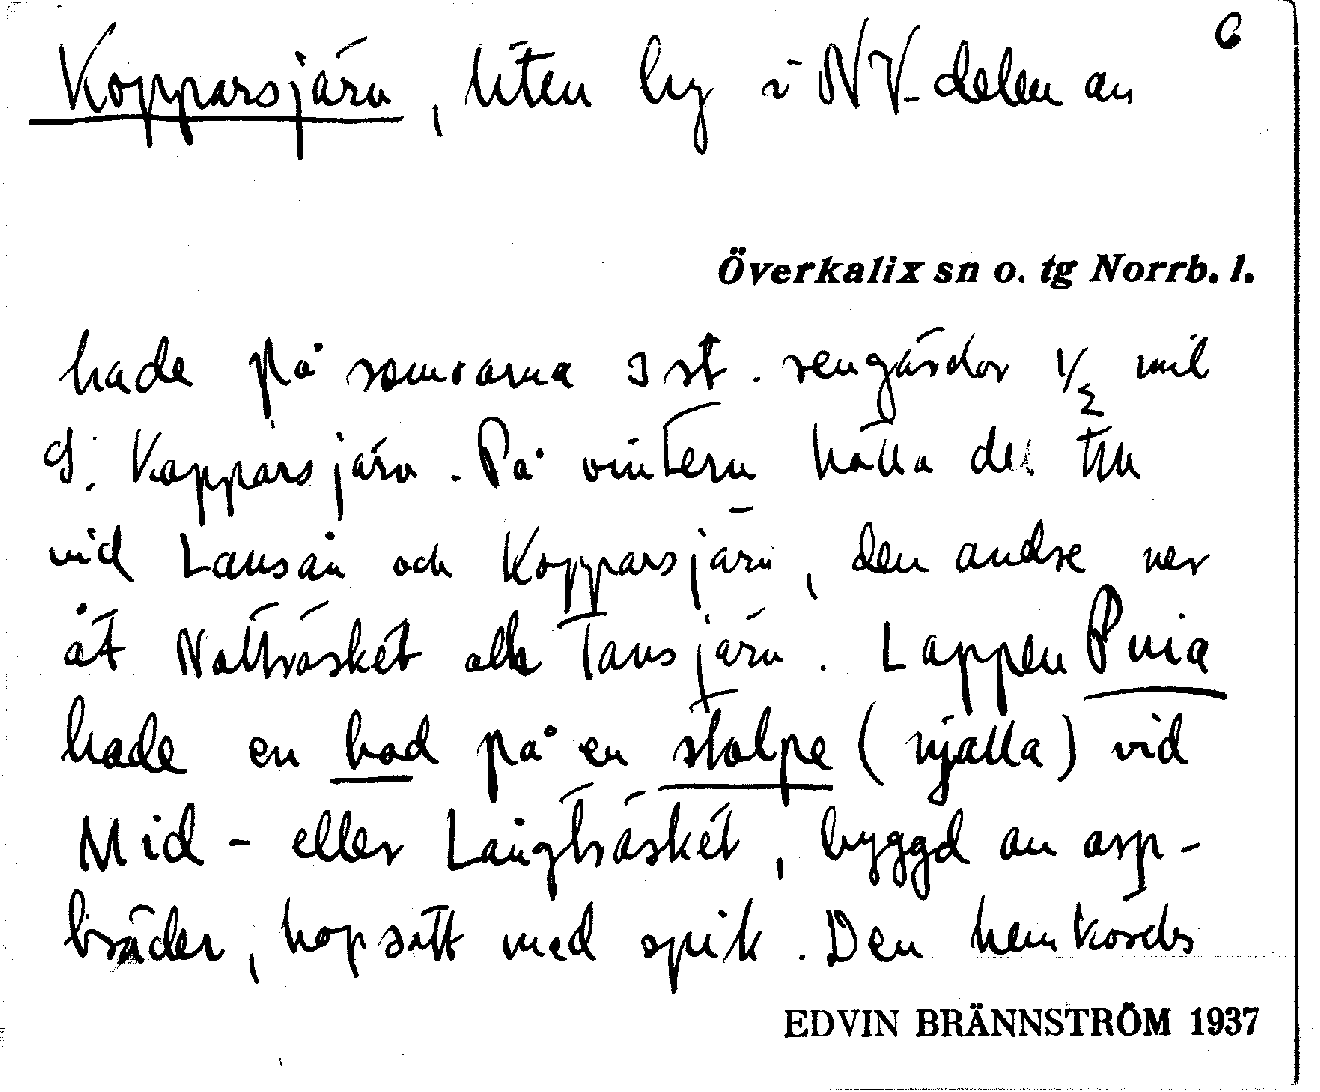 6
Kopparsjärv, liten by i NV-delen av
Överkalix sn o. tg Norrb. l.
hade på somrarna 3 st. rengärdor 1/2 mil
S. Kopparsjärv. På vintern hålla de till
vid Lansån och Kopparsjärv, den andre ner
åt Nattträsket och Tansjärv. Lappen Puia
hade en bod på en stolpe (njalla) vid
Mid- eller Långträsket, byggd av asp-
bräder, hopsatt med spik. Den hemkördes
EDVIN BRÄNNSTRÖM 1937